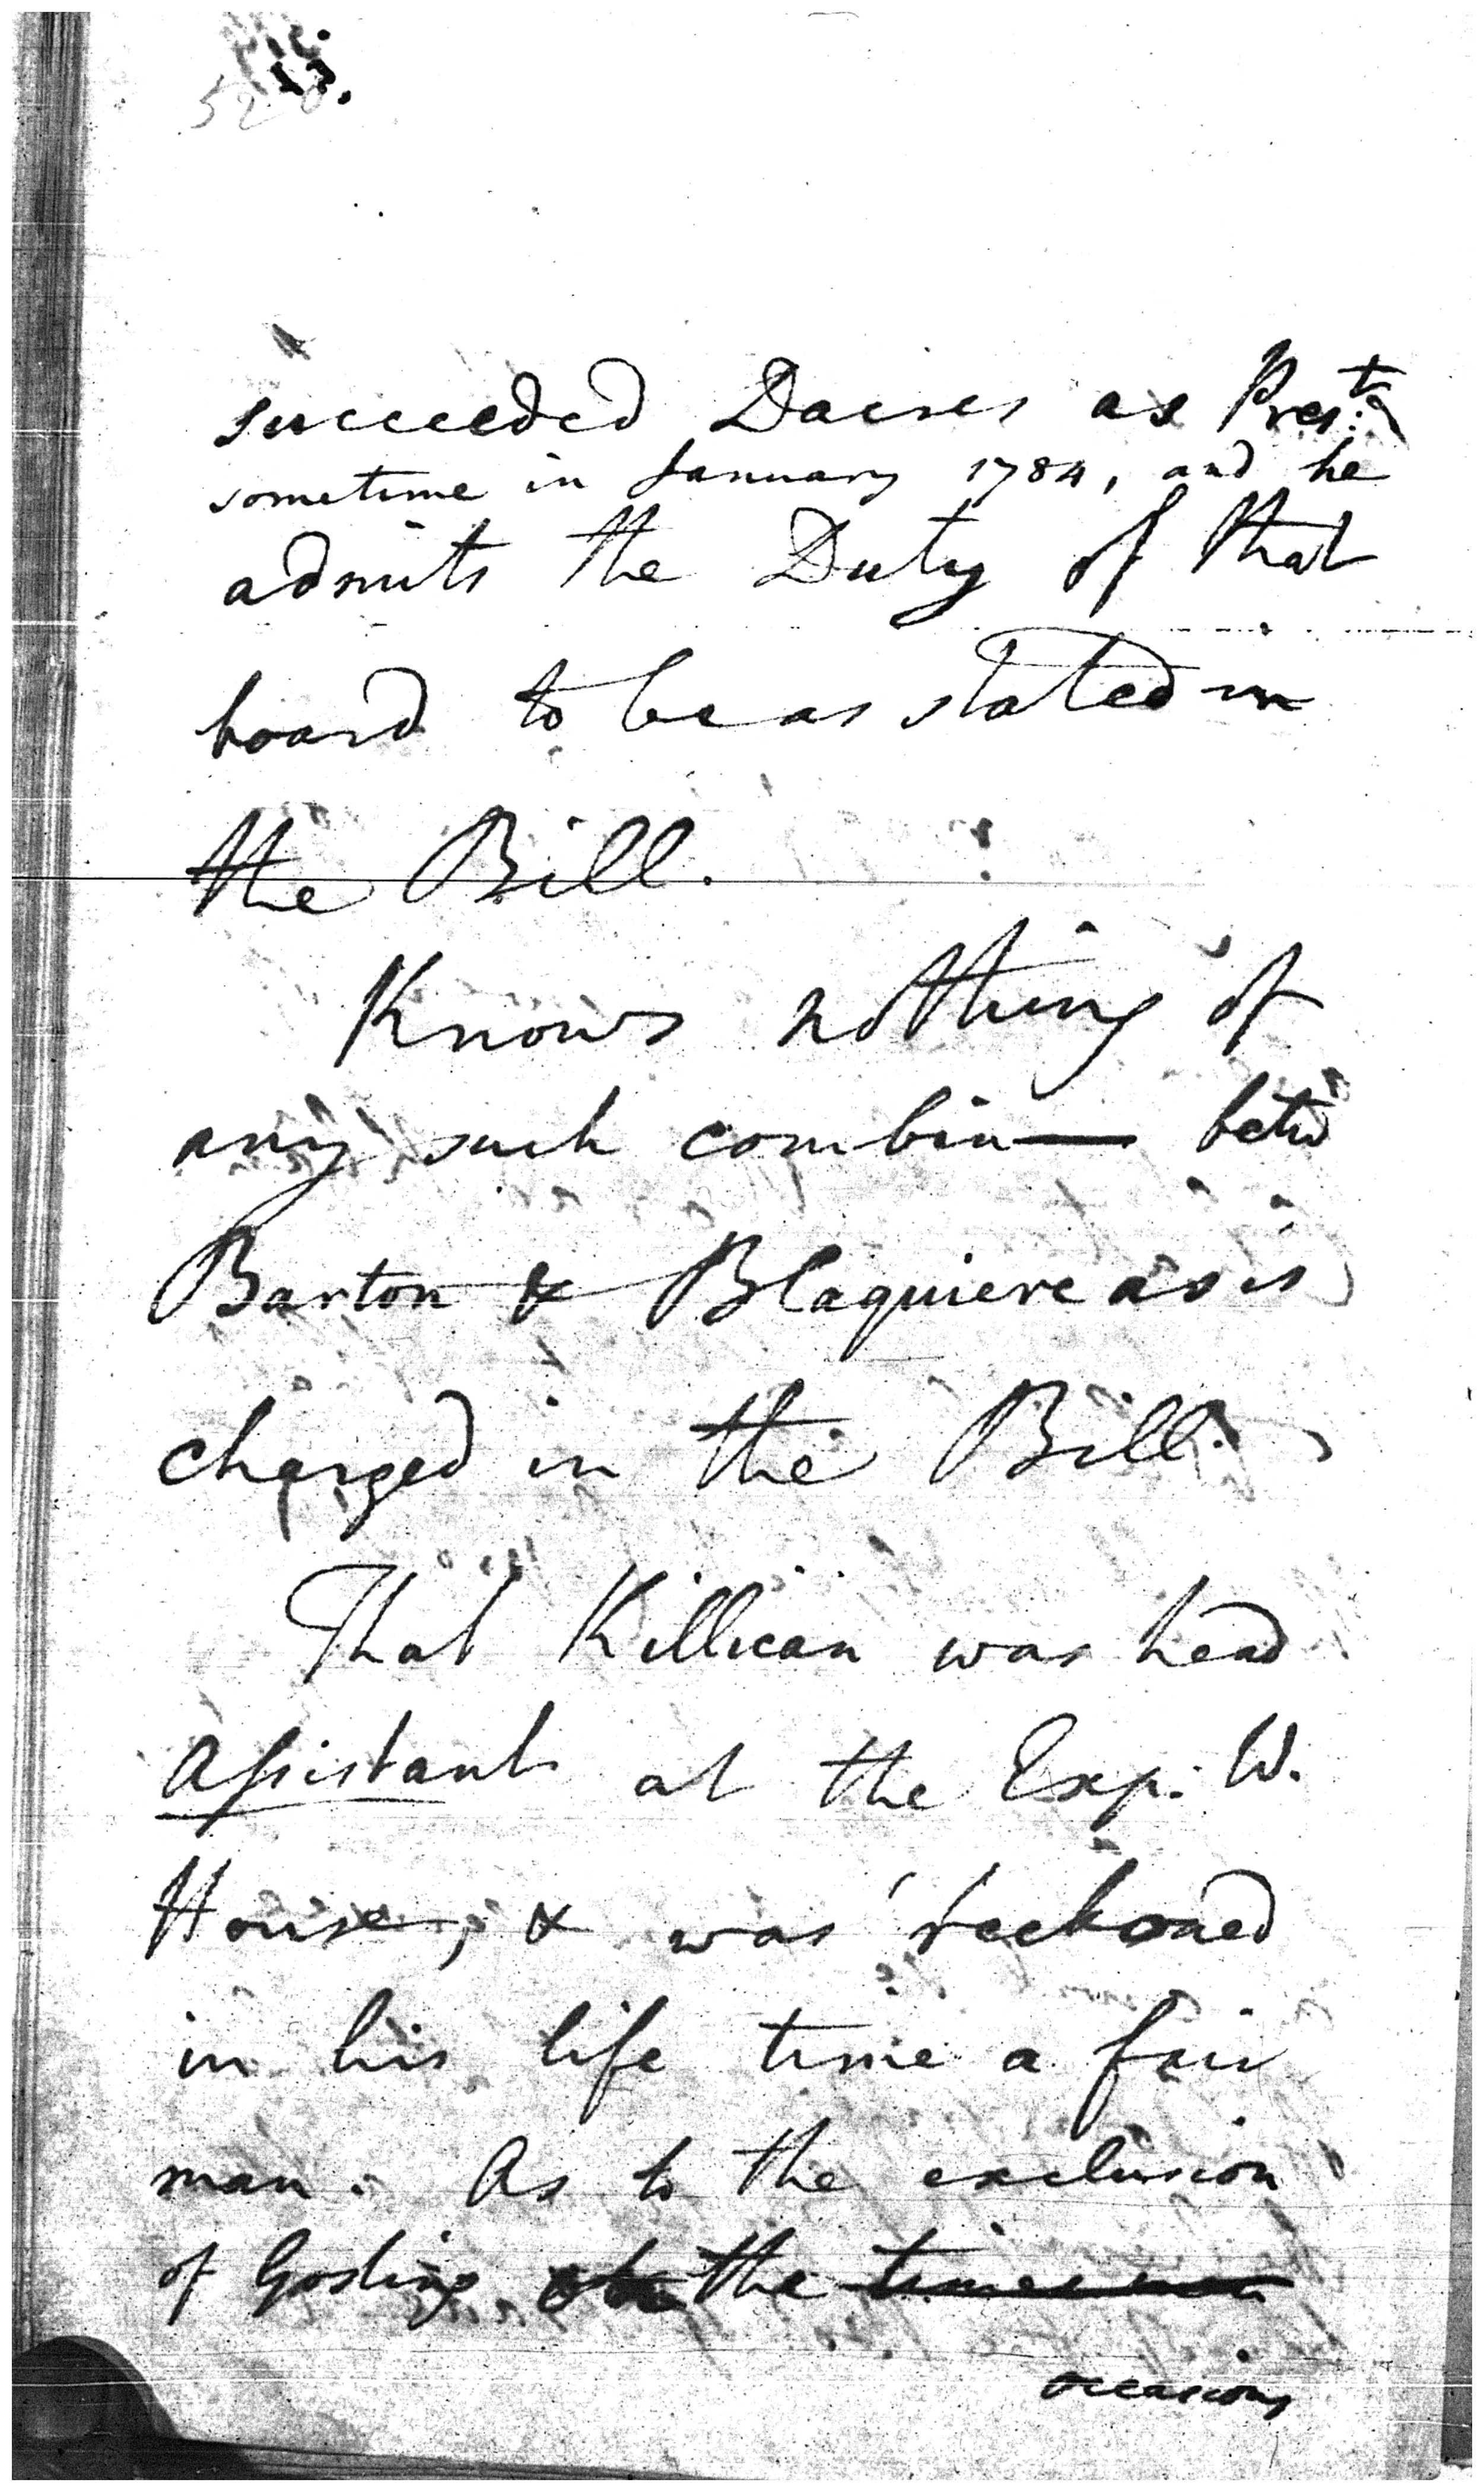 succeeded Dacres as Prest.
sometime in January 1784, and he
admits the Duty of that
board to be as stated in
the Bill.
Knows nothing of
any such combin— betw
Barton & Blaquiere as is
charged in the Bill.
That Killican was head
Assistant at the Exp: W.
House, & was reckoned
in his life time a fair
man. As to the exclusion
of Gosling the
occasions